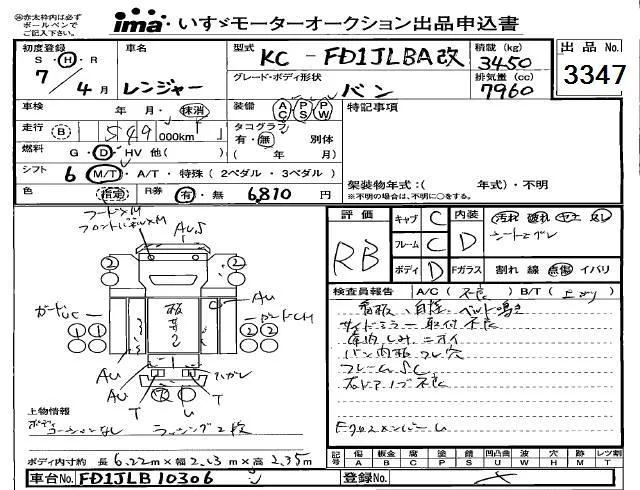 ※赤太枠内は必ず
ボールペンで
ご記入下さい。
ima・いすゞモーターオークション出品申込書
初度登録 S・H・R 7/4月
車名 レンジャー
型式 KC-FD1JLBA改
積載(kg) 3450
出品No. 3347
グレード・ボディ形状 バン
排気量(cc) 7960
車検 年 月・抹消
装備 AC PS PW
特記事項
走行 B 549 000km
タコグラフ 有・無 別体
(年 月)
燃料 G・D・HV 他( )
シフト 6 M/T・A/T・特殊(2ペダル・3ペダル)
色 指定 R券 有・無 6,810円
架装物年式:( 年式)・不明
※不明の場合は、不明に○をする。
評価 RB
キャブ C 内装 D 汚れ 破れ ヤニ
フレーム C
ボディ D Fガラス 割れ 線 点傷 イバリ
検査員報告 A/C(不良) B/T( )
看板、自揺、ベルト鳴き
サイドミラー取付不良
庫内しみ、ニオイ
バン内板フレ穴
フレームSC
右ドアノブ不良
FクロスメンバーU
フードンM
フロントパネルM
AuS
2 2
ガードUC
Au
ガードCM
1 1 2 2
板
Au
Au
ハガレ
T U T
上物情報
ボディ
コーションなし ラッシング2段
ボディ内寸約 長 6.22m×幅 2.13m×高 2.35m
記号 傷A 板金B 腐C 塗P 錆S 凹凸曲U 波W 穴H 跡M レンズ割T
車台No. FD1JLB10306
登録No.